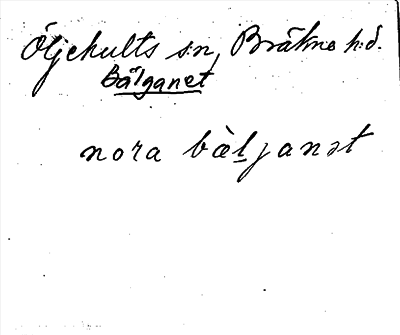 Öljehults sn, Bräkne h:d.
Bälganet
nora bàljanət